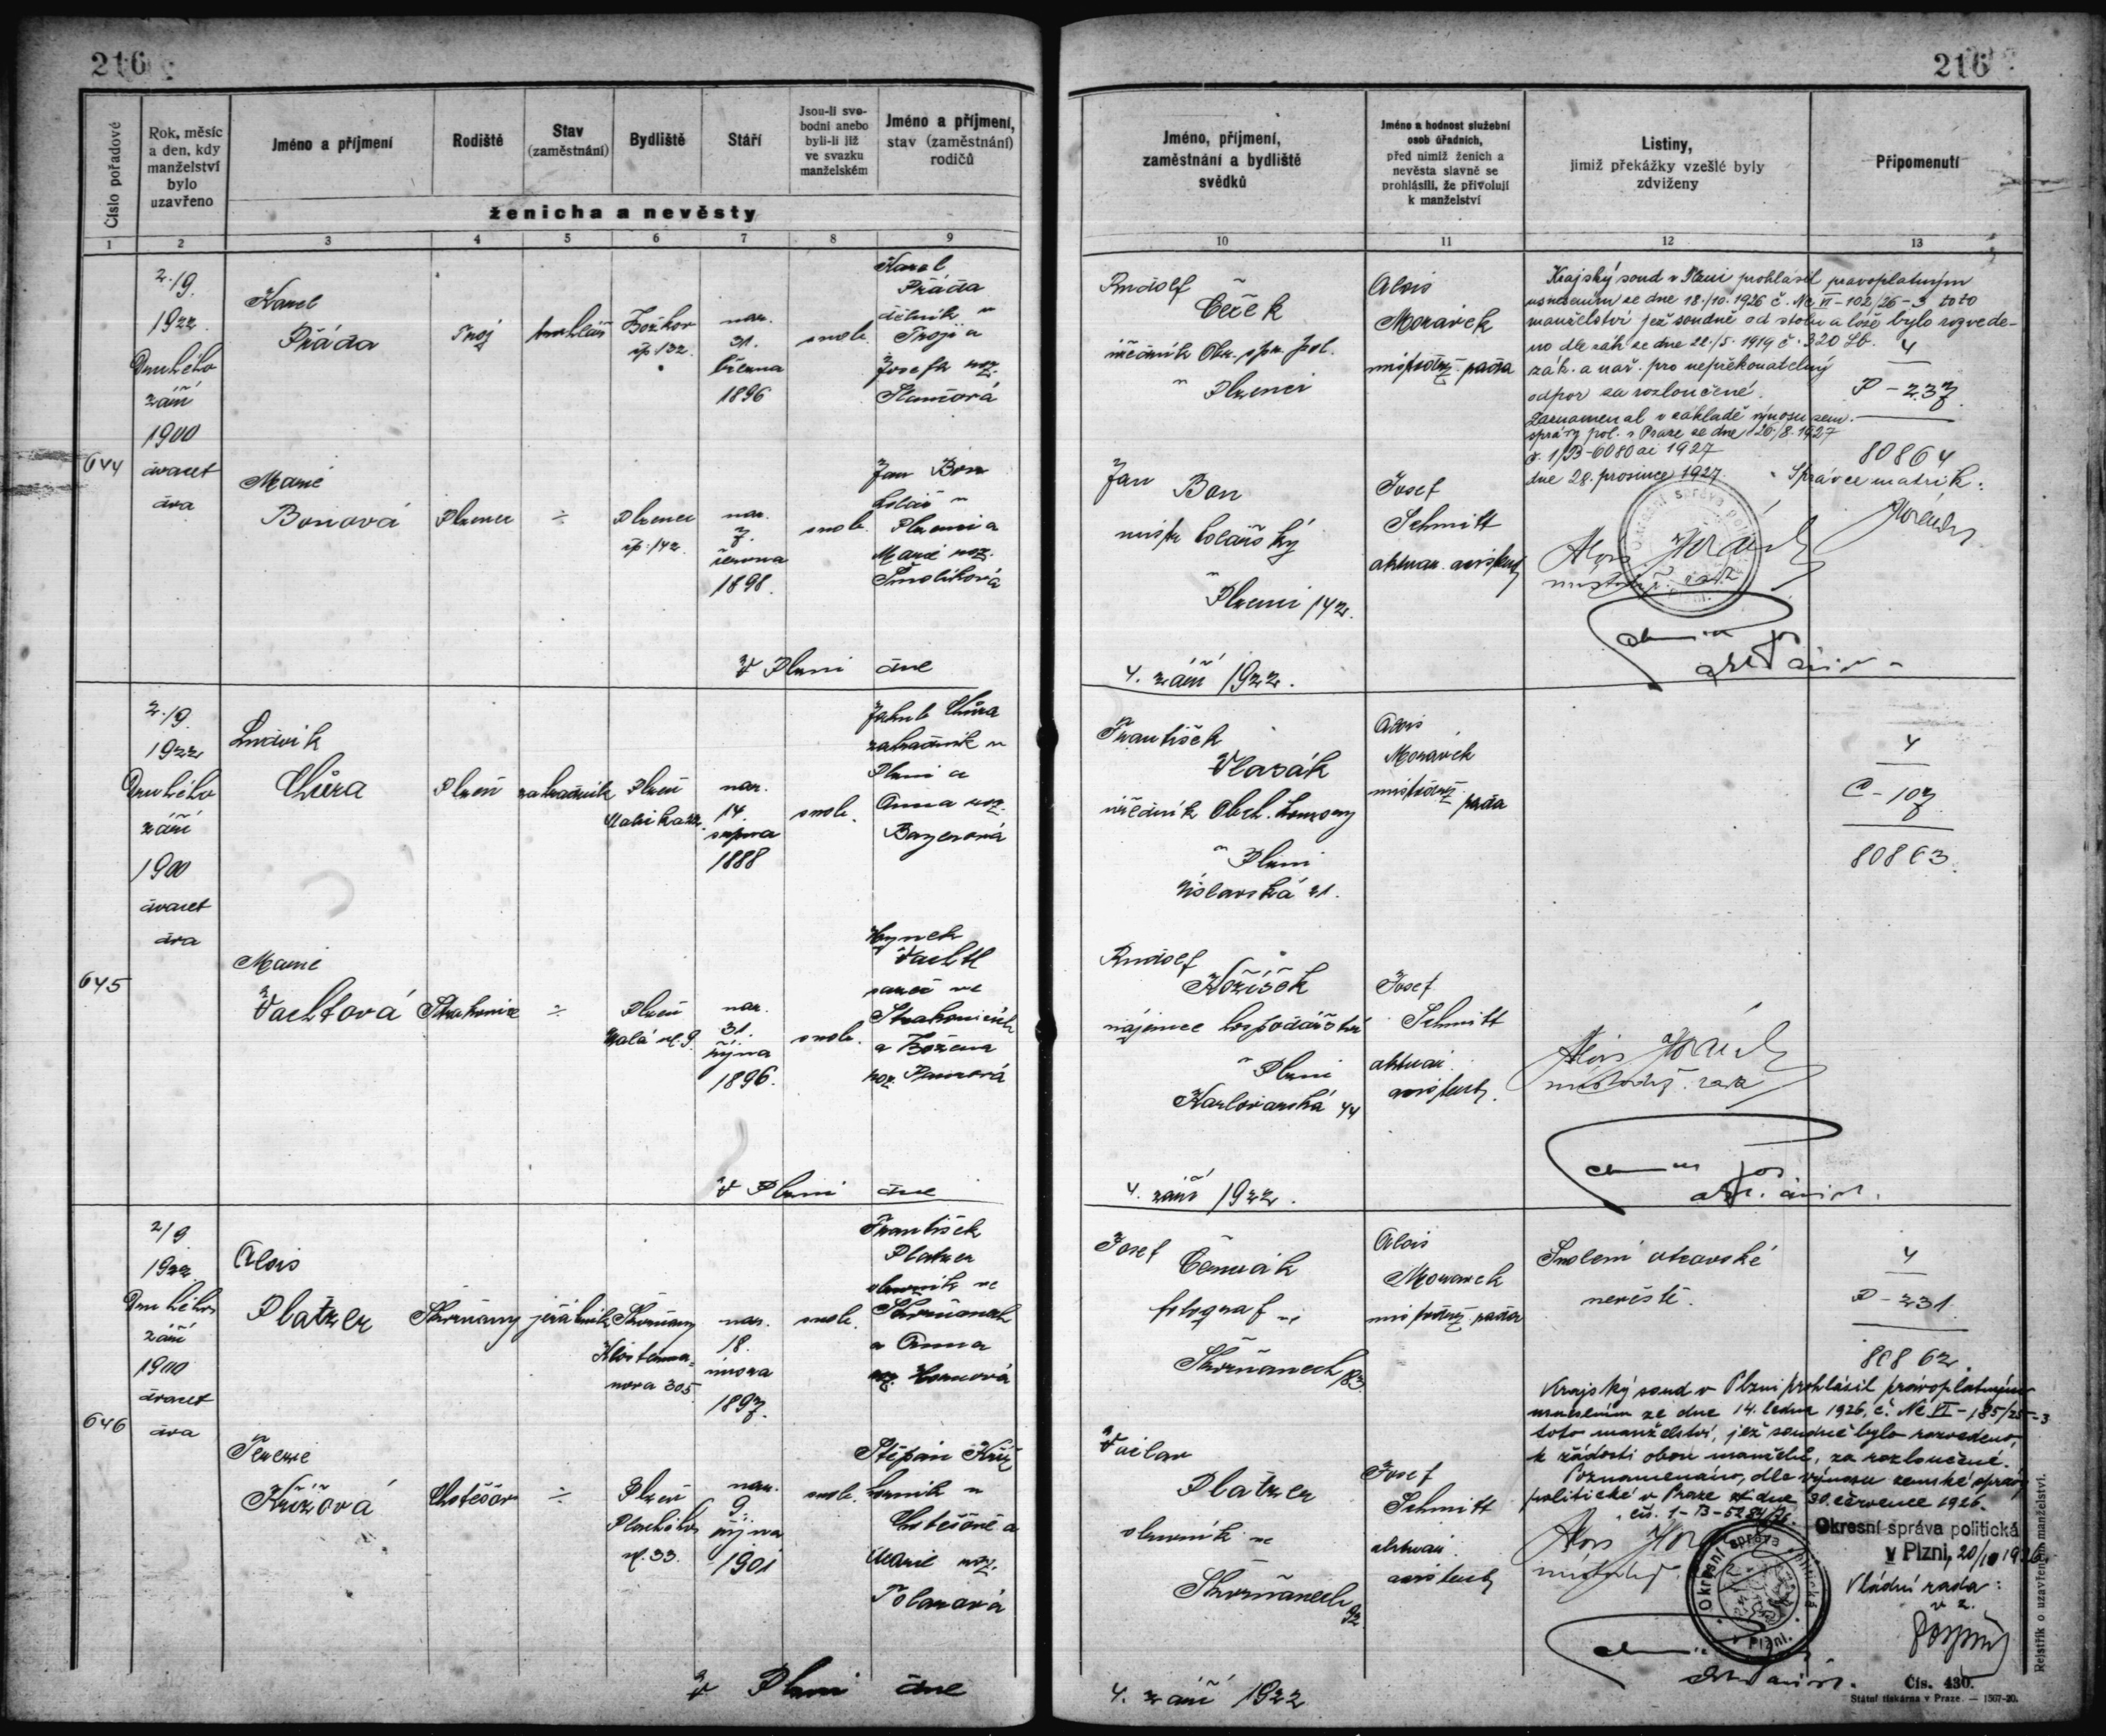 216
216
Číslo pořadové
Rok, měsíc
a den, kdy
manželství
bylo
uzavřeno
Jméno a příjmení
Rodiště
Stav
(zaměstnání)
Bydliště
Stáří
Jsou-li svo-
bodni anebo
byli-li již
ve svazku
manželském
Jméno a příjmení,
stav (zaměstnání)
rodičů
ženicha a nevěsty
Jméno, příjmení,
zaměstnání a bydliště
svědků
Jméno a hodnost služební
osob úřadních,
před nimiž ženich a
nevěsta slavně se
prohlásili, že přivolují
k manželství
Listiny,
jimiž překážky vzešlé byly
zdviženy
Připomenutí
1 2 3 4 5 6 7 8 9
10 11 12 13
644
2./9.
1922
Druhého
září
1900
dvacet
dva
Karel
Práda
Božkov
čp. 132
nar.
31.
března
1896
svob.
Karel
Práda
dělník v
a
Josefa roz.
Marie
Bonová
Plzenec
÷
Plzenec
čp. 142
nar.
7.
června
1898.
svob.
Jan Bon
kolář v
Plzenci a
Marie roz.
Smolíková
V Plzni dne
Rudolf
Čeček
úředník Okr. spr. pol.
v Plzenci
Jan
Bon
mistr kolářský
v
Plzenci 142.
4. září 1922.
Alois
Moravek
místodrž. rada
Josef
Schmitt
aktuar. assistent
Krajský soud v Plzni prohlásil pravoplatným
usnesením ze dne 18./10. 1926 č. Nc VI-102/26-3 toto
manželství jež soudně od stolu a lože bylo rozvede-
no dle zák. ze dne 22./5. 1919 č. 320 Sb.
zák. a nař. pro nepřekonatelný
odpor za rozloučené.
Zaznamenal v základě výnosu zem.
správy pol. v Praze ze dne 20./8. 1927
č. 1/B-6080 ai 1927
dne 28. prosince 1927. Správce matrik:
4
P-237
80864
645
2./9.
1922
Druhého
září
1900
dvacet
dva
Ludvik
Chůra
Plzeň
zahradník
Plzeň
nar.
14.
srpna
1888
svob.
Jakub Chůra
zahradník v
Plzni a
Anna roz.
Bayerová
Marie
Vachtová
Strakonice
÷
Plzeň
Malá ul. 9.
nar.
31.
října
1896.
svob.
Hynek
Vachtl
ve
Strakonicích
a Božena
roz.
V Plzni dne
František
Vlasák
úředník Obch. komory
v Plzni
Úslavská 21.
Rudolf
Kožíšek
nájemce hospodářství
v Plzni
Karlovarská 44
4. září 1922.
Alois
Moravek
místodrž.
rada
Josef
Schmitt
aktuar.
assistent.
4
C-107
80863.
646
2/9
1922
Druhého
září
1900
dvacet
dva
Alois
Platzer
Skvrňany
jeřábník
Skvrňany
Klosterman-
nova 305
nar.
18.
února
1897.
svob.
František
Platzer
olovník ve
Skvrňanech
a Anna
roz.
Terezie
Křížová
Chotěšov
÷
Plzeň
Plachého
ul. 33.
nar.
9.
října
1901
svob.
Štěpán Kříž
horník v
Chotěšově a
Marie roz.
V Plzni dne
Josef
Čermák
fotograf ve
Skvrňanech 183.
Václav
Platzer
olovník ve
Skvrňanech
92
4. září 1922
Alois
Moravek
místodrž. rada
Josef
Schmitt
aktuar.
assistent
Svolení otcovské
nevěstě.
4
P-231
80862.
Krajský soud v Plzni prohlásil právoplatným
usnesením ze dne 14. ledna 1926, č. Nc VI-185/25-3
toto manželství, jež soudně bylo rozvedeno,
k žádosti obou manželů, za rozloučené.
Poznamenáno, dle výnosu zemské správy
politické v Praze ze dne 30. července 1926.
Okresní správa politická
v Plzni, 20/10 1926
Vládní rada:
v z.
Okresní správa politická
v Plzni.
Rejstřík o uzavření manželství.
Čís. 430.
Státní tiskárna v Praze. — 1567-20.